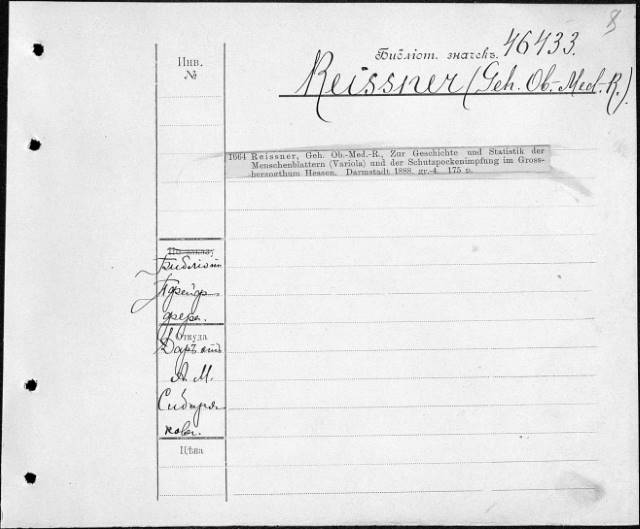 8
Библіот. значекъ. 46433.
Инв.
№
Reissner (Geh. Ob.-Med.-R.)
1664 Reissner, Geh. Ob.-Med.-R., Zur Geschichte und Statistik der
Menschenblattern (Variola) und der Schutzpockenimpfung im Gross-
herzogthum Hessen. Darmstadt 1888. gr.-4. 175 p.
Библіот.
Откуда
Даръ отъ
А. М.
Сибиря-
кова.
Цѣна